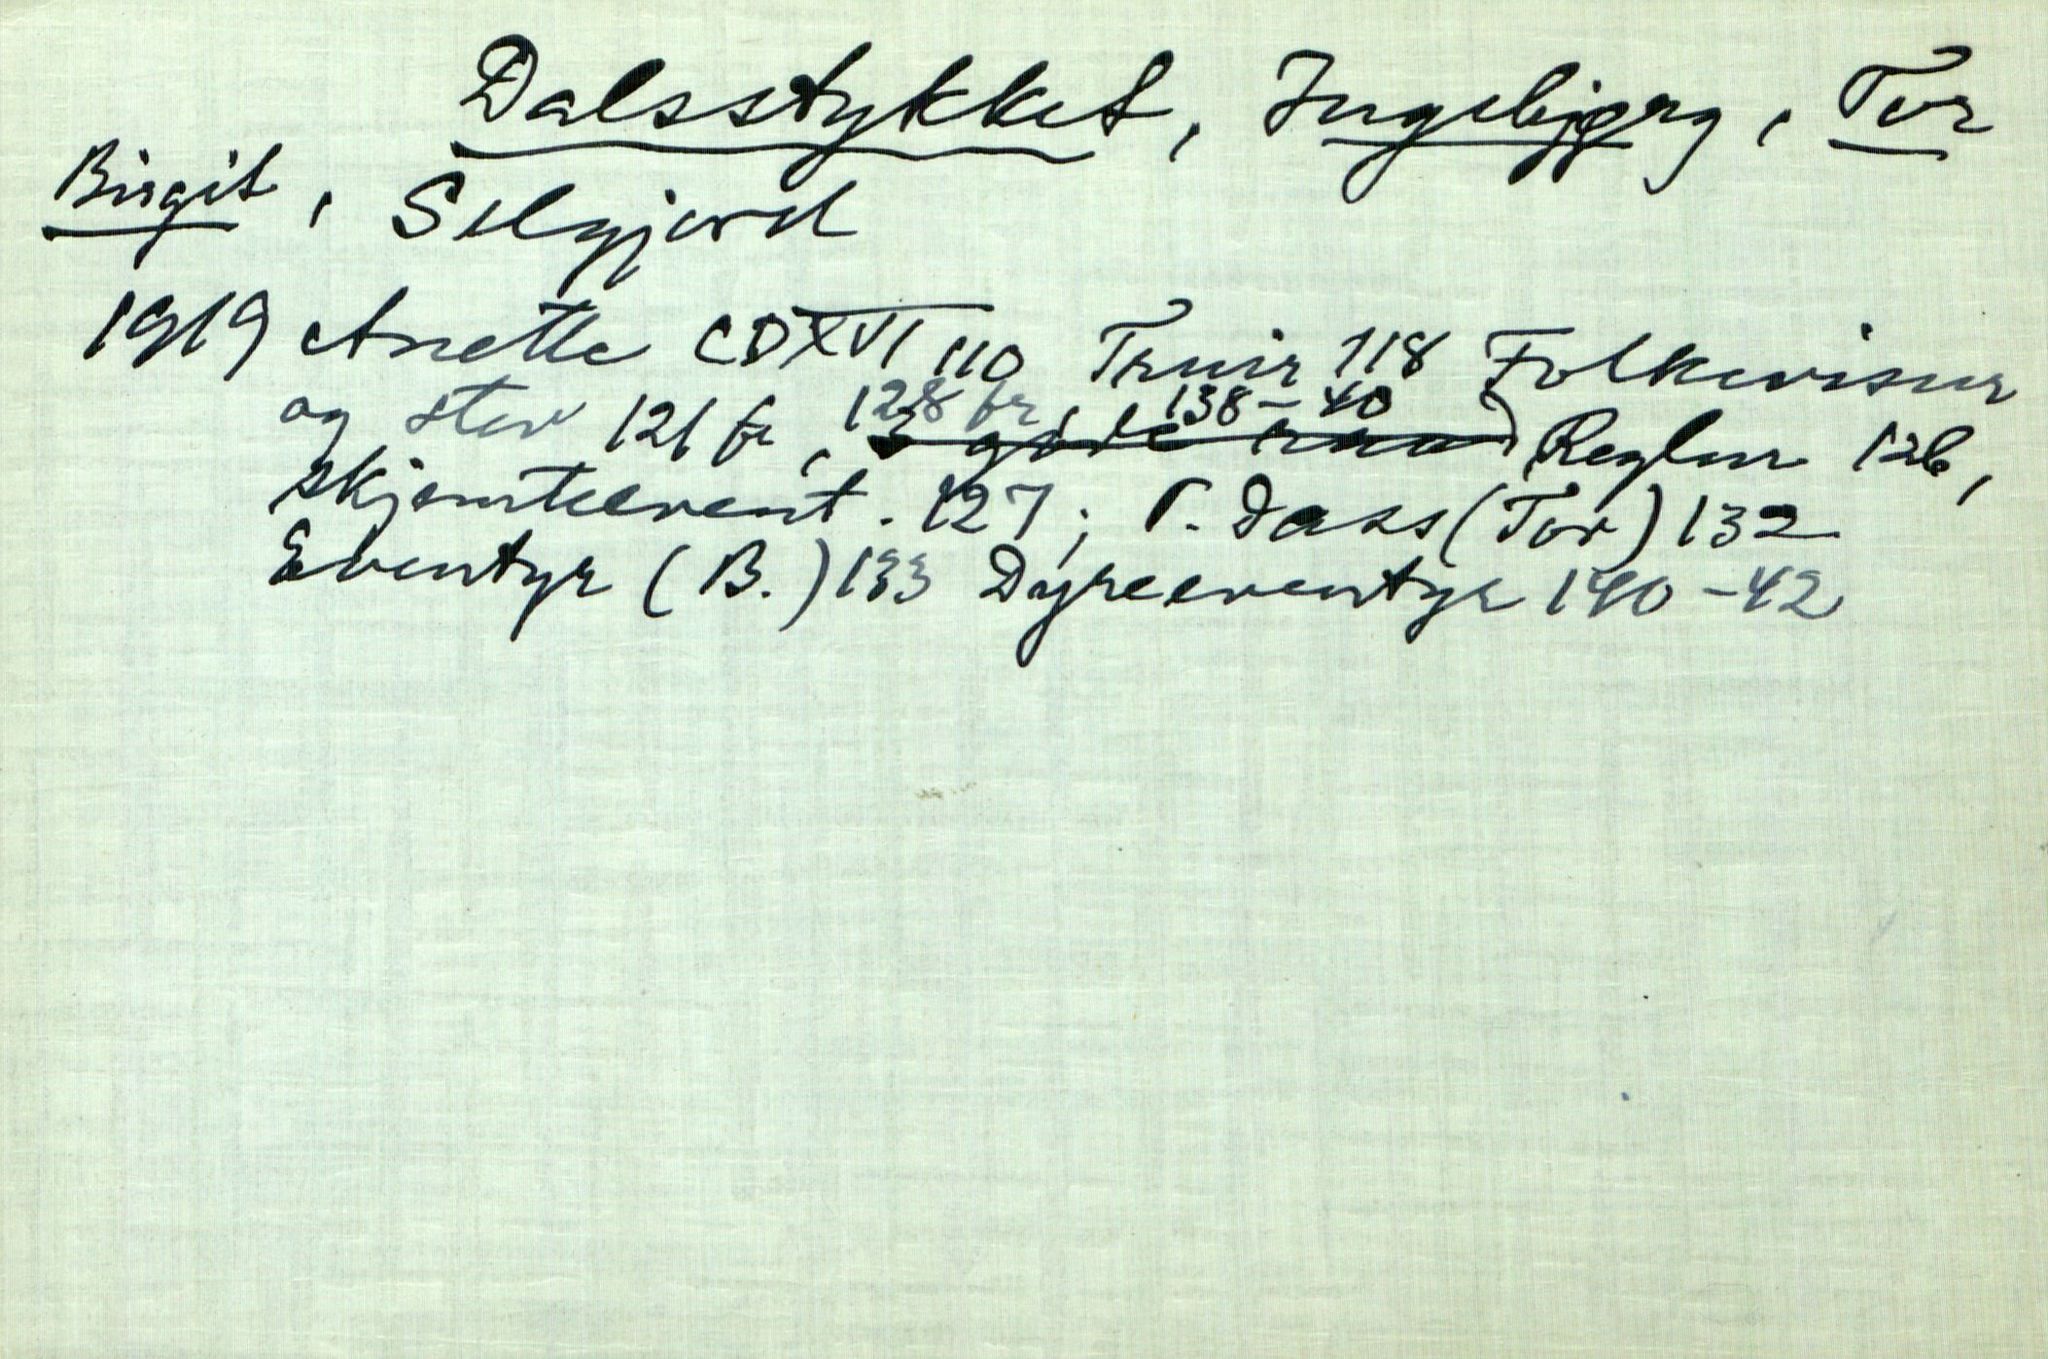 Dalsstykket, Ingebjørg, Tor
Birgit, Selgjord
1919 Anette CDXVI 110 Truir 118 Folkevisur
og stev 121 fr, 128 fr, 138–40 Reglur 126,
skjemteevent. 127; P. Dass (Tov) 132
Eventyr (B.) 133 Dyreeventyr 140–42